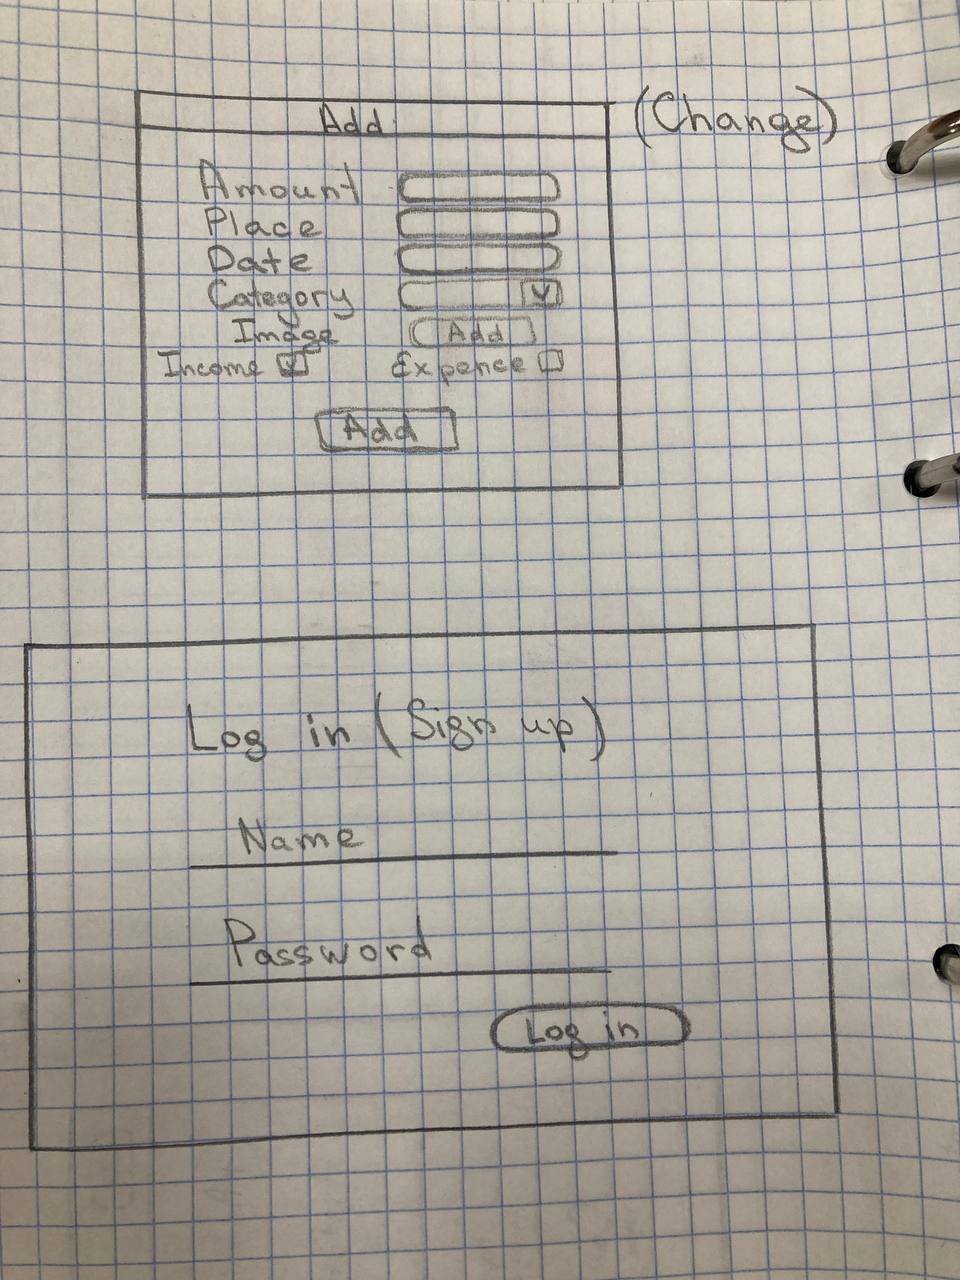 Add (Change)
Amount
Place
Date
Category
Image Add
Income Expence
Add
Log in (Sign up)
Name
Password
Log in